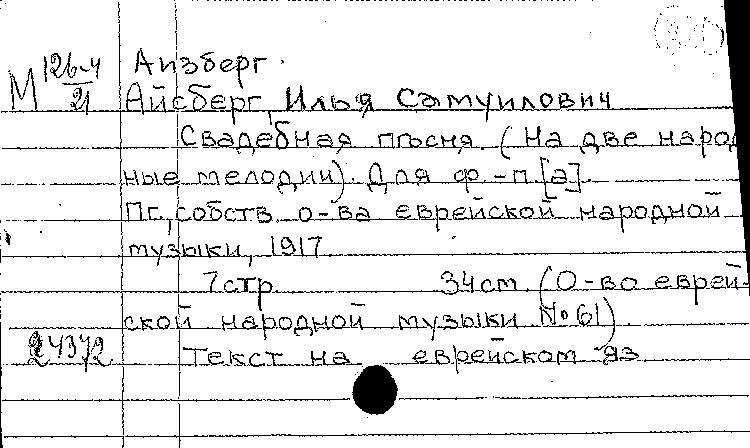 М 126-4/21
Аизберг.
Айсберг, Илья Самуилович
Свадебная пѣсня. (На две народ
ные мелодии). Для ф.-п.[а].
Пг., собств. о-ва еврейской народной
музыки, 1917.
7стр. 34см. (О-во еврей-
ской народной музыки №61)
24372 Текст на еврейском яз.